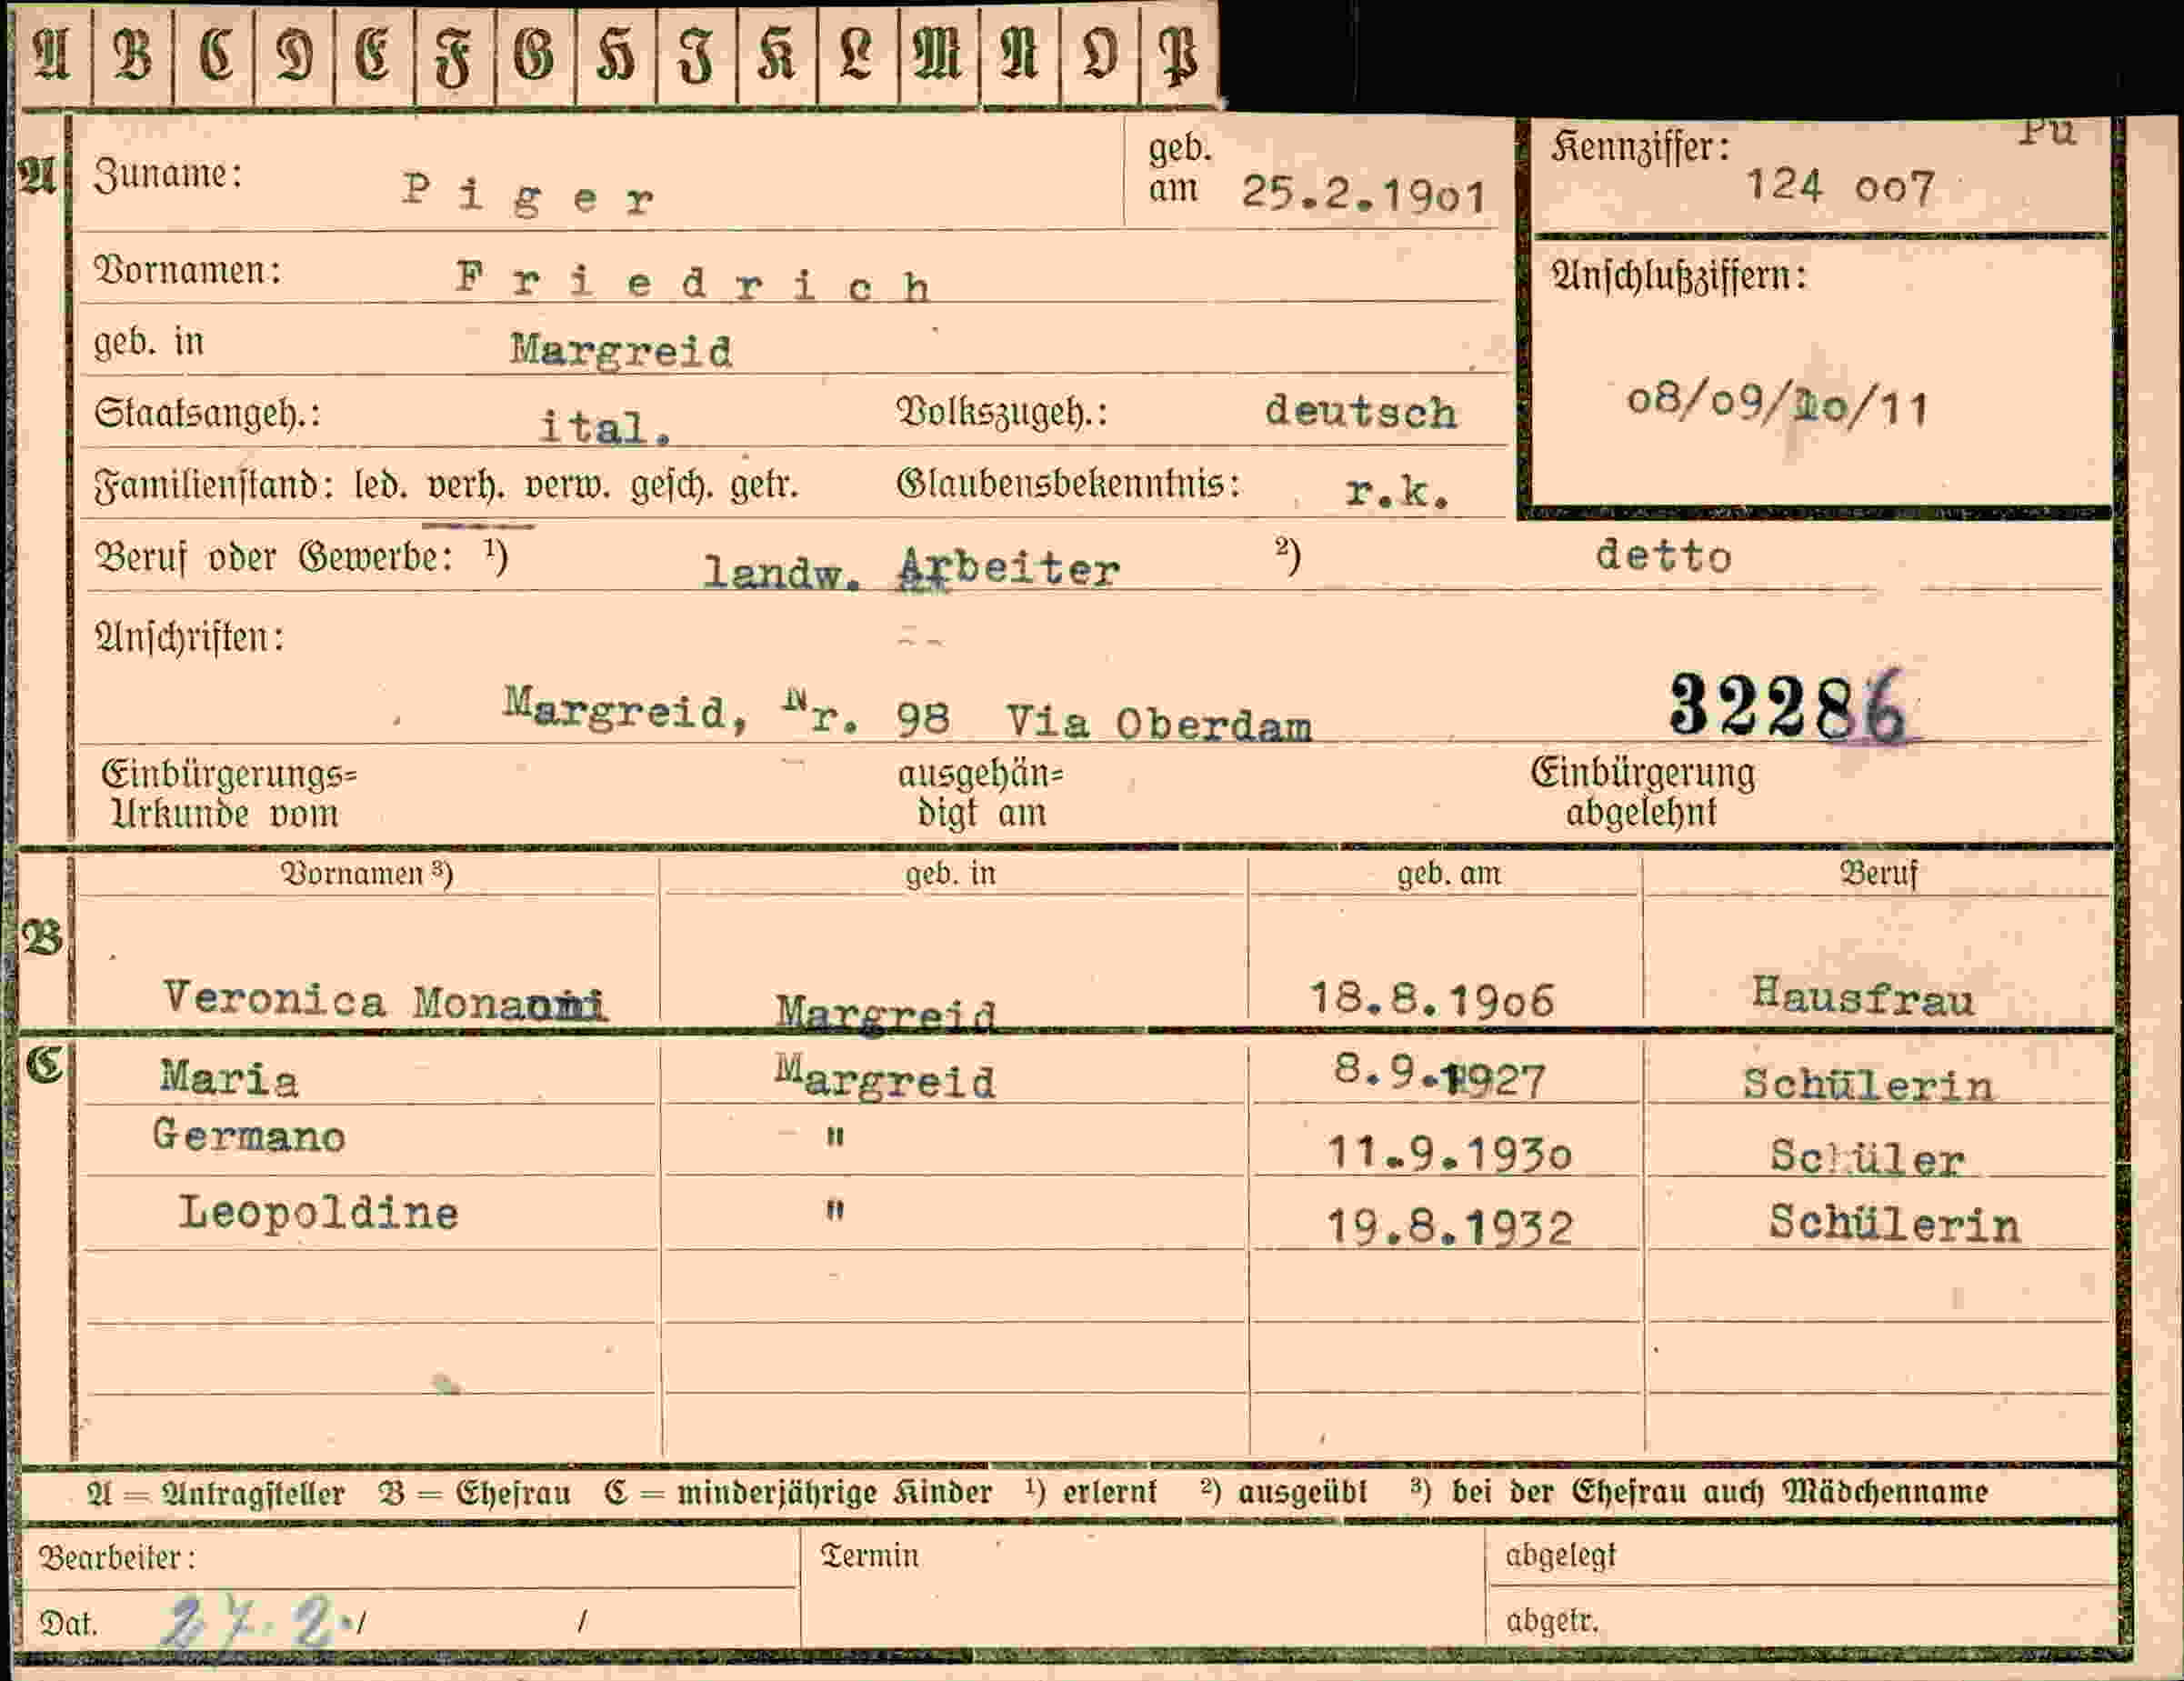 A B C D E F G H I K L M N O P
Pu
A Zuname: Piger geb. am 25.2.19o1 Kennziffer: 124 oo7
Vornamen: Friedrich Anschlußziffern:
geb. in Margreid
Staatsangeh.: ital. Volkszugeh.: deutsch o8/o9/1o/11
Familienstand: led. verh. verw. gesch. getr. Glaubensbekenntnis: r.k.
Beruf oder Gewerbe: ¹) landw. Arbeiter ²) detto
Anschriften:
Margreid, Nr. 98 Via Oberdam 32286
Einbürgerungs= ausgehän= Einbürgerung
Urkunde vom digt am abgelehnt
Vornamen ³) geb. in geb. am Beruf
B
Veronica Margreid 18.8.19o6 Hausfrau
C Maria Margreid 8.9.1927 Schülerin
Germano " 11.9.193o Schüler
Leopoldine " 19.8.1932 Schülerin
A = Antragsteller B = Ehefrau C = minderjährige Kinder ¹) erlernt ²) ausgeübt ³) bei der Ehefrau auch Mädchenname
Bearbeiter: Termin abgelegt
Dat. 27.2./ / abgetr.